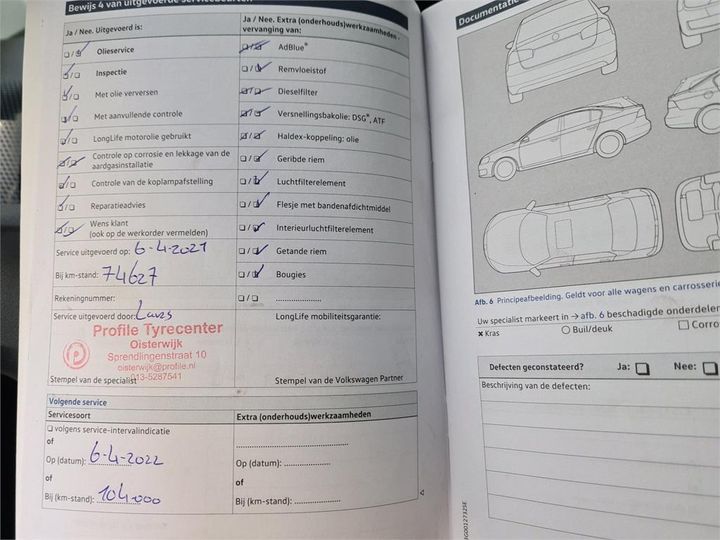 Bewijs 4 van uitgevoerde servicebeurten
Ja / Nee. Uitgevoerd is:
Olieservice
Inspectie
Met olie verversen
Met aanvullende controle
LongLife motorolie gebruikt
Controle op corrosie en lekkage van de
aardgasinstallatie
Controle van de koplampafstelling
Reparatieadvies
Wens klant
(ook op de werkorder vermelden)
Service uitgevoerd op: 6-4-2021
Bij km-stand: 74627
Rekeningnummer:
Service uitgevoerd door:
Profile Tyrecenter
Oisterwijk
Sprendlingenstraat 10
oisterwijk@profile.nl
013-5287541
Stempel van de specialist
Ja / Nee. Extra (onderhouds)werkzaamheden -
vervanging van:
AdBlue®
Remvloeistof
Dieselfilter
Versnellingsbakolie: DSG®, ATF
Haldex-koppeling: olie
Geribde riem
Luchtfilterelement
Flesje met bandenafdichtmiddel
Interieurluchtfilterelement
Getande riem
Bougies
LongLife mobiliteitsgarantie:
Stempel van de Volkswagen Partner
Volgende service
Servicesoort
volgens service-intervalindicatie
of
Op (datum): 6-4-2022
of
Bij (km-stand): 104.000
Extra (onderhouds)werkzaamheden
Op (datum):
of
Bij (km-stand):
Documentatie
Afb. 6 Principeafbeelding. Geldt voor alle wagens en carrosserie
Uw specialist markeert in → afb. 6 beschadigde onderdelen
Kras
Buil/deuk
Corro
Defecten geconstateerd? Ja: Nee:
Beschrijving van de defecten: